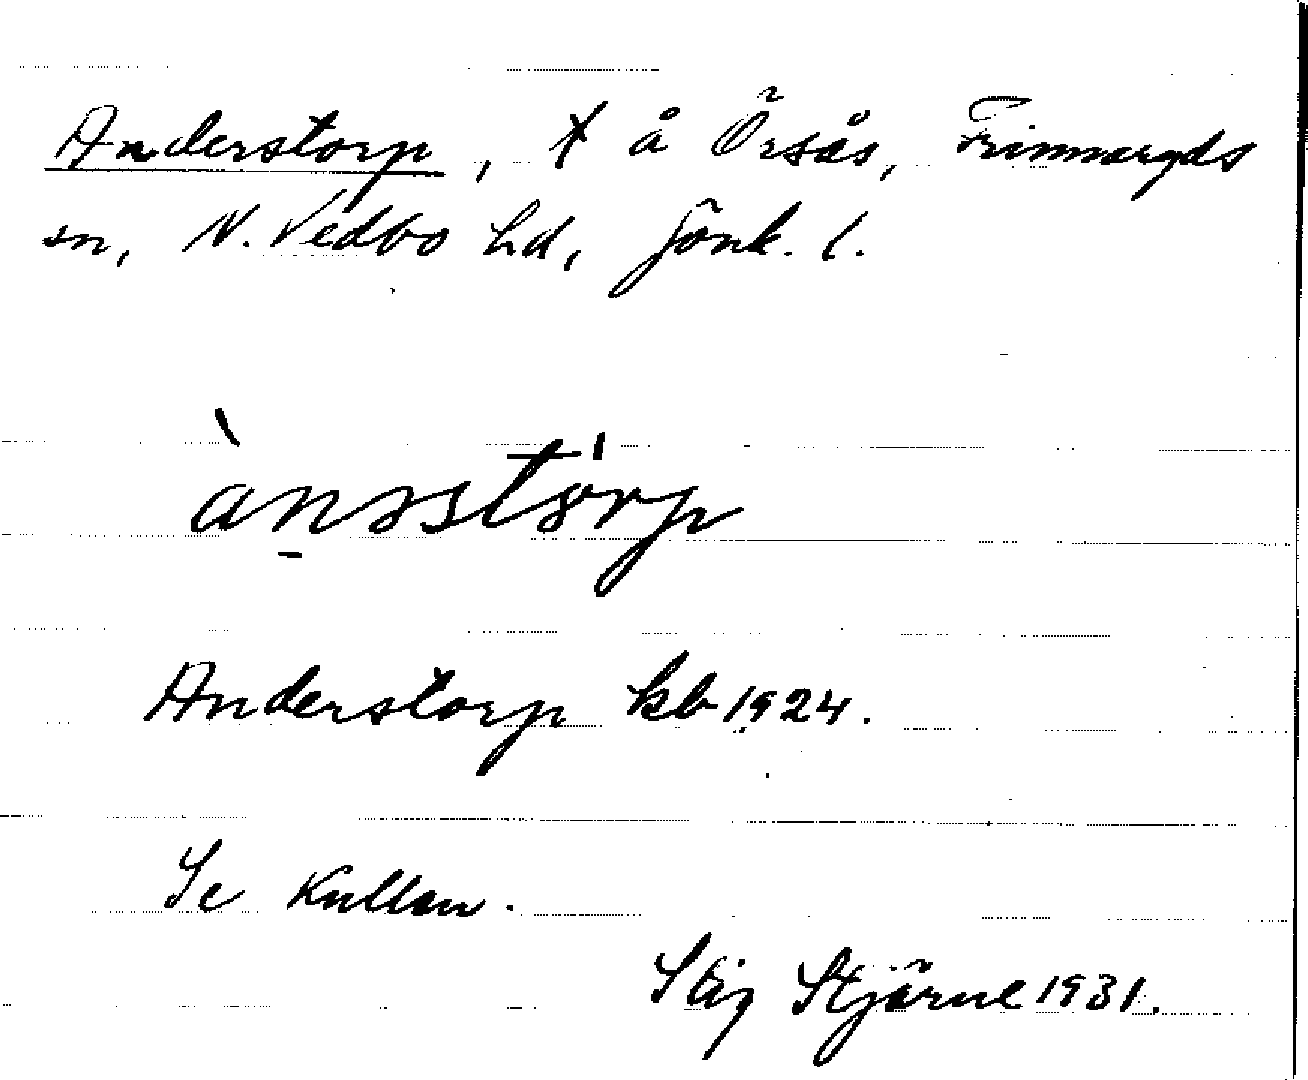 Anderstorp, † å Örsås, Frinnaryds
sn, N. Vedbo hd, Jönk. l.
àn̠sstórp
Anderstorp kb 1924.
Se Kullen.
Stig Stjärne 1931.